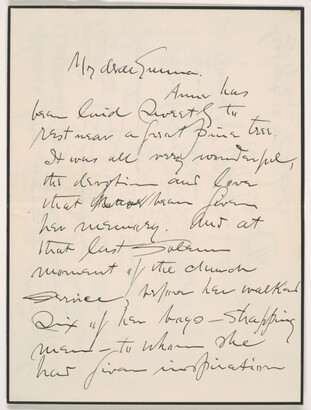 My dear Emma.
Anna has
been laid quietly to
rest near a great pine tree.
It was all very wonderful,
the devotion and love
that have been given
her memory. And at
that last solemn
moment of the church
service, before her walked
six of her boys - strapping
men - to whom she
had given inspiration